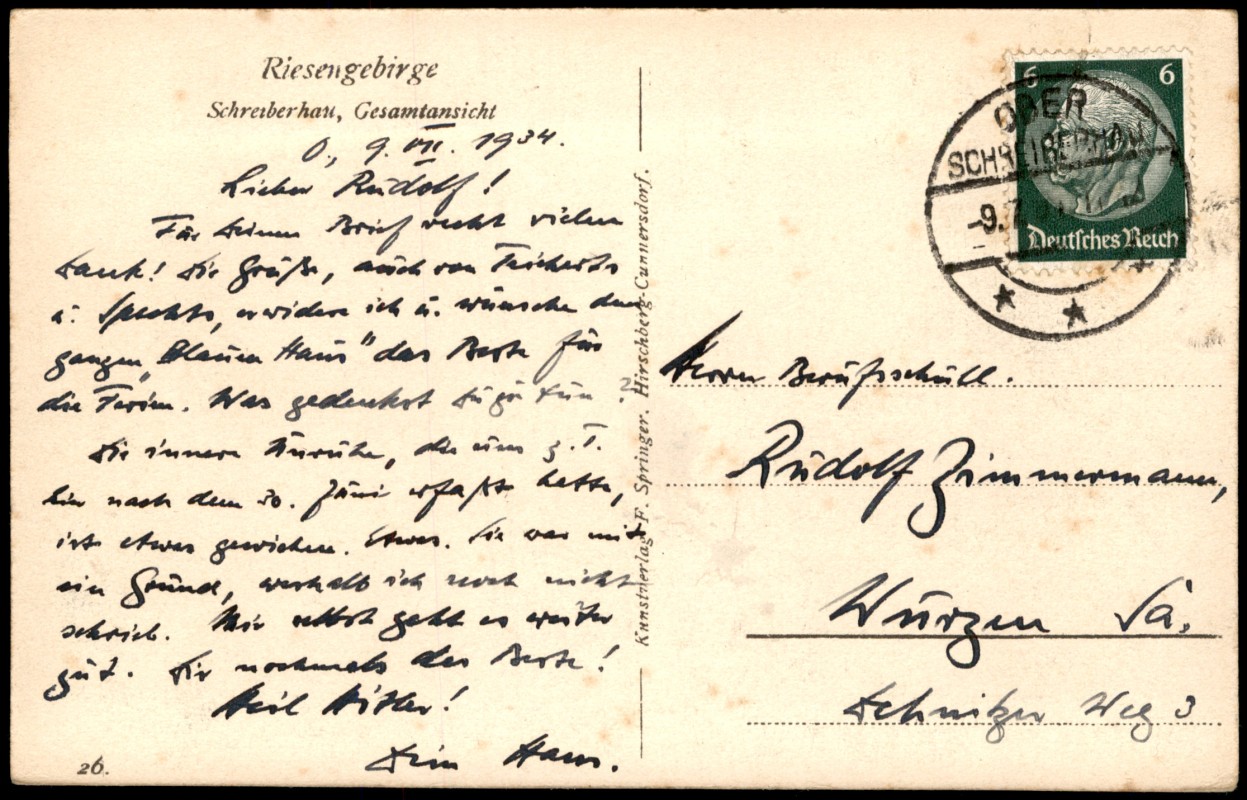 Riesengebirge
Schreiberhau, Gesamtansicht
O., 9. VII. 1934.
Lieber Rudolf!
Für Deinen Brief recht vielen
Dank! Die Grüße, auch von Teicherts
u. Spechts, erwidere ich u. wünsche dem
ganzen „Blauen Haus" das Beste für
die Ferien. Was gedenkst Du zu tun?
Die innere Unruhe, die uns z. T.
hier nach dem 30. Juni erfaßt hatte,
ist etwas gewichen. Etwas. Sie war mit
ein Grund, weshalb ich noch nicht
schrieb. Mir selbst geht es weiter
gut. Dir nochmals das Beste!
Heil Hitler!
Dein Hans.
26.
Kunstverlag F. Springer. Hirschberg-Cunnersdorf.
6 6
Deutsches Reich
OBER
SCHREIBERHAU
-9.7
Herrn Berufsschull.
Rudolf Zimmermann,
Wurzen Sa.
Dehnitzer Weg 3